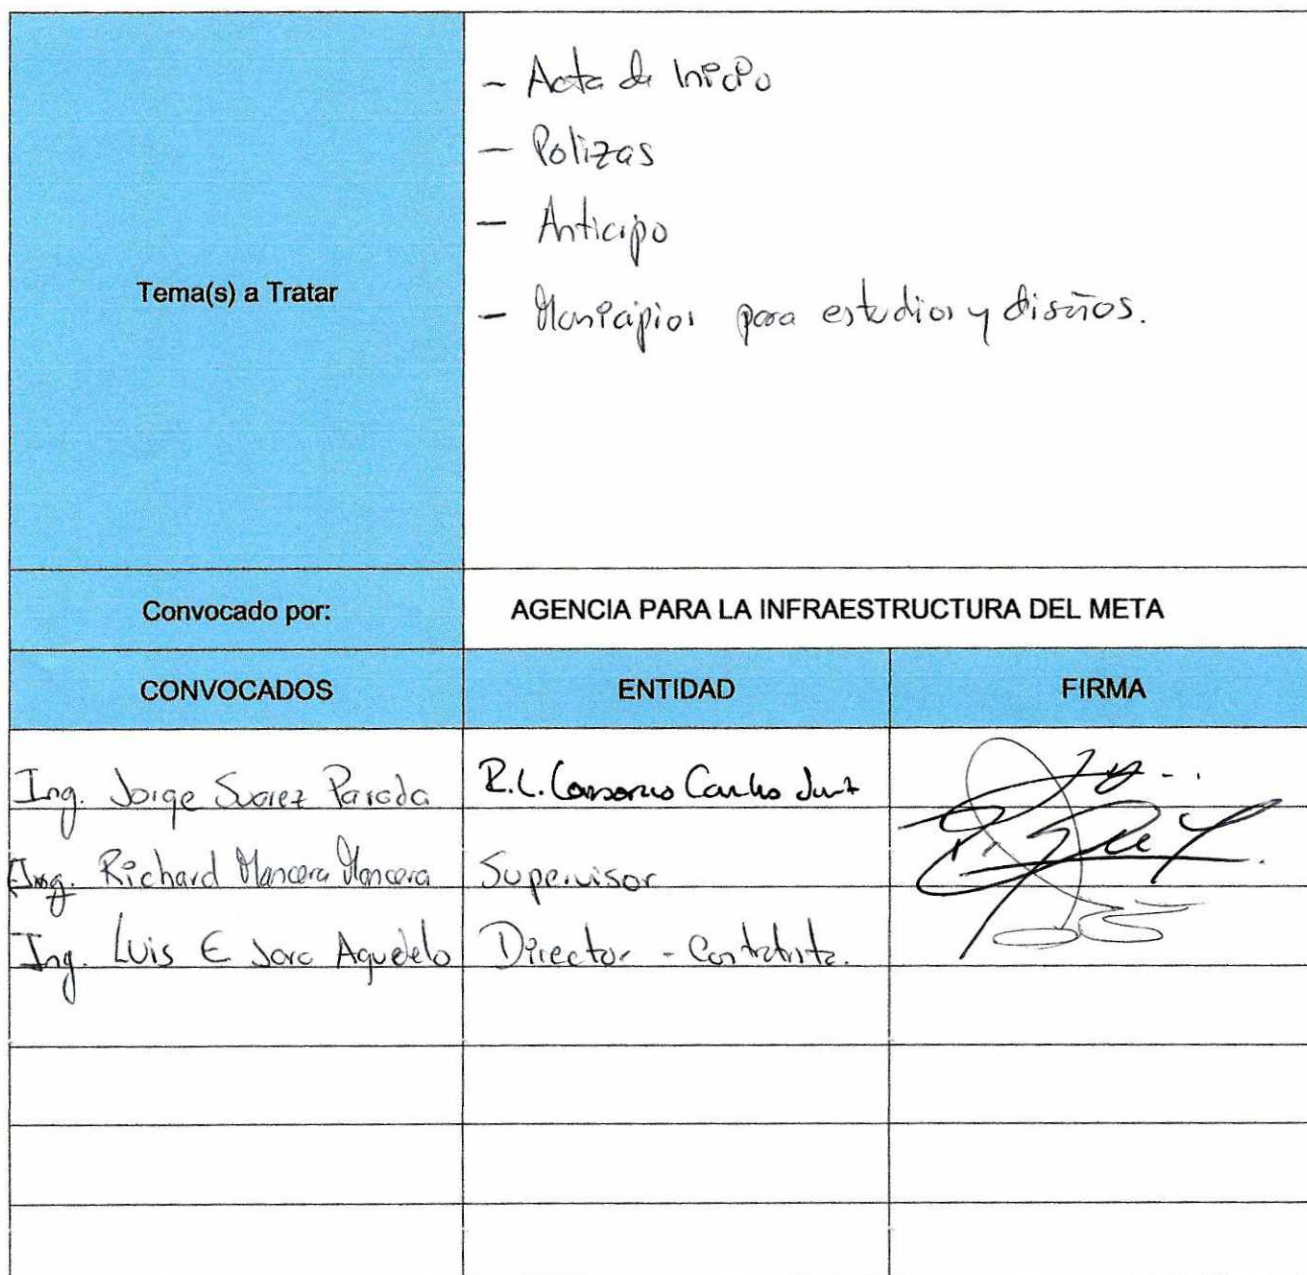 Tema(s) a Tratar
- Acta de Inicio
- Polizas
- Anticipo
- Municipios para estudios y diseños.
Convocado por: AGENCIA PARA LA INFRAESTRUCTURA DEL META
CONVOCADOS ENTIDAD FIRMA
Ing. Jorge Suarez Parada R.L. Consorcio
Ing. Richard Mancera Mancera Supervisor
Ing. Luis E Jara Agudelo Director - Contratista.